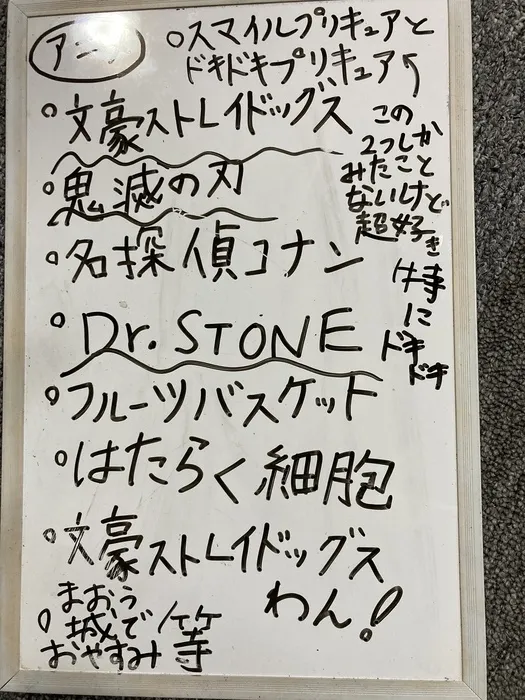 アニメ
○スマイルプリキュアと
ドキドキプリキュア
○文豪ストレイドッグス
○鬼滅の刃
○名探偵コナン
○Dr.STONE
○フルーツバスケット
○はたらく細胞
○文豪ストレイドッグス
わん!
○まおう
城で
おやすみ 等
この
2つしか
みたこと
ないけど
超好き
特
に
ドキ
ドキ